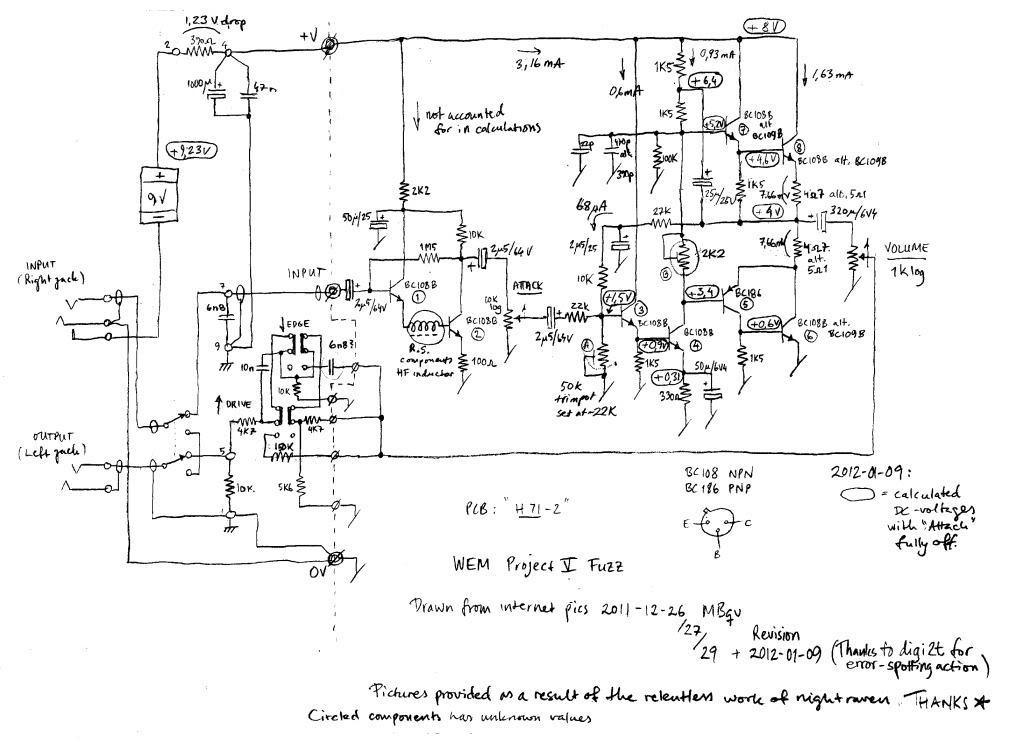 1,23 V drop
390Ω
2
4
+V
1000µ
47n
+9,23V
9V
3,16 mA
not accounted
for in calculations
0,6mA
1K5
0,93 mA
+6,4
1K5
+8V
1,63 mA
+5,2V
BC108B
alt
BC109B
7
8
+4,6V
BC108B alt. BC109B
100K
1K5
7,66mV
4Ω7 alt. 5Ω1
25µ/25V
+4V
320µ/6V4
68µA
27K
2µ5/25
7,66mV
4Ω7
alt.
5Ω1
VOLUME
1K log
2K2
B
2K2
50µ/25
10K
1M5
2µ5/64V
10K
INPUT
(Right jack)
INPUT
7
6n8
9
2µ5/64V
BC108B
1
BC108B
2
R.S.
components
HF inductor
100Ω
10K
log
ATTACK
2µ5/64V
22K
+1,5V
3
BC108B
A
50K
trimpot
set at ~22K
+0,9V
1K5
BC108B
4
+0,31
330Ω
50µ/6V4
+3,4
BC186
5
+0,6V
1K5
BC108B alt.
BC109B
6
EDGE
6n8?
10n
10K
DRIVE
4K7
4K7
OUTPUT
(Left jack)
5
10K
5K6
10K.
0V
PCB: "H 71-2"
BC108 NPN
BC186 PNP
E
C
B
2012-01-09:
= calculated
DC-voltages
with "Attack"
fully off.
WEM Project V Fuzz
Drawn from internet pics 2011-12-26
/27
/29 + 2012-01-09 (Thanks to digi2t for
Revision
error-spotting action)
Pictures provided as a result of the relentless work of nightraven. THANKS
Circled components has unknown values